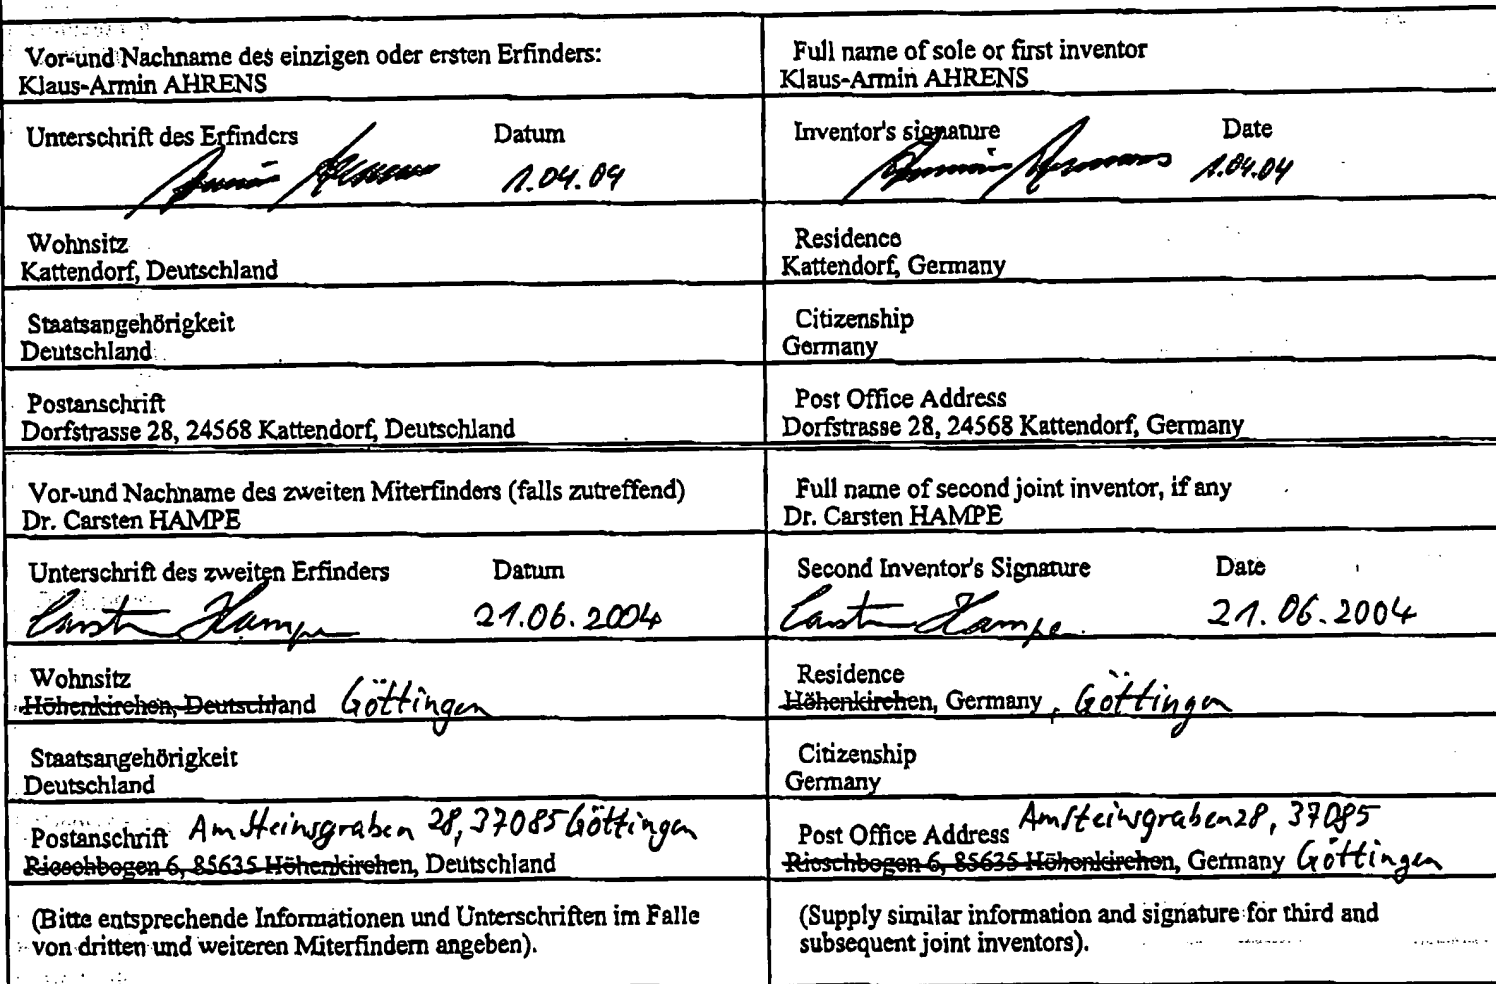 Vor-und Nachname des einzigen oder ersten Erfinders:
Klaus-Armin AHRENS
Full name of sole or first inventor
Klaus-Armin AHRENS
Unterschrift des Erfinders Datum
1.04.04
Inventor's signature Date
1.04.04
Wohnsitz
Kattendorf, Deutschland
Residence
Kattendorf, Germany
Staatsangehörigkeit
Deutschland
Citizenship
Germany
Postanschrift
Dorfstrasse 28, 24568 Kattendorf, Deutschland
Post Office Address
Dorfstrasse 28, 24568 Kattendorf, Germany
Vor-und Nachname des zweiten Miterfinders (falls zutreffend)
Dr. Carsten HAMPE
Full name of second joint inventor, if any
Dr. Carsten HAMPE
Unterschrift des zweiten Erfinders Datum
Carsten Hampe 21.06.2004
Second Inventor's Signature Date
Carsten Hampe 21.06.2004
Wohnsitz
Höhenkirchen, Deutschland Göttingen
Residence
Höhenkirchen, Germany, Göttingen
Staatsangehörigkeit
Deutschland
Citizenship
Germany
Postanschrift Am Steinsgraben 28, 37085 Göttingen
Rieschbogen 6, 85635 Höhenkirchen, Deutschland
Post Office Address Am Steinsgraben 28, 37085
Rieschbogen 6, 85635 Höhenkirchen, Germany Göttingen
(Bitte entsprechende Informationen und Unterschriften im Falle
von dritten und weiteren Miterfindern angeben).
(Supply similar information and signature for third and
subsequent joint inventors).